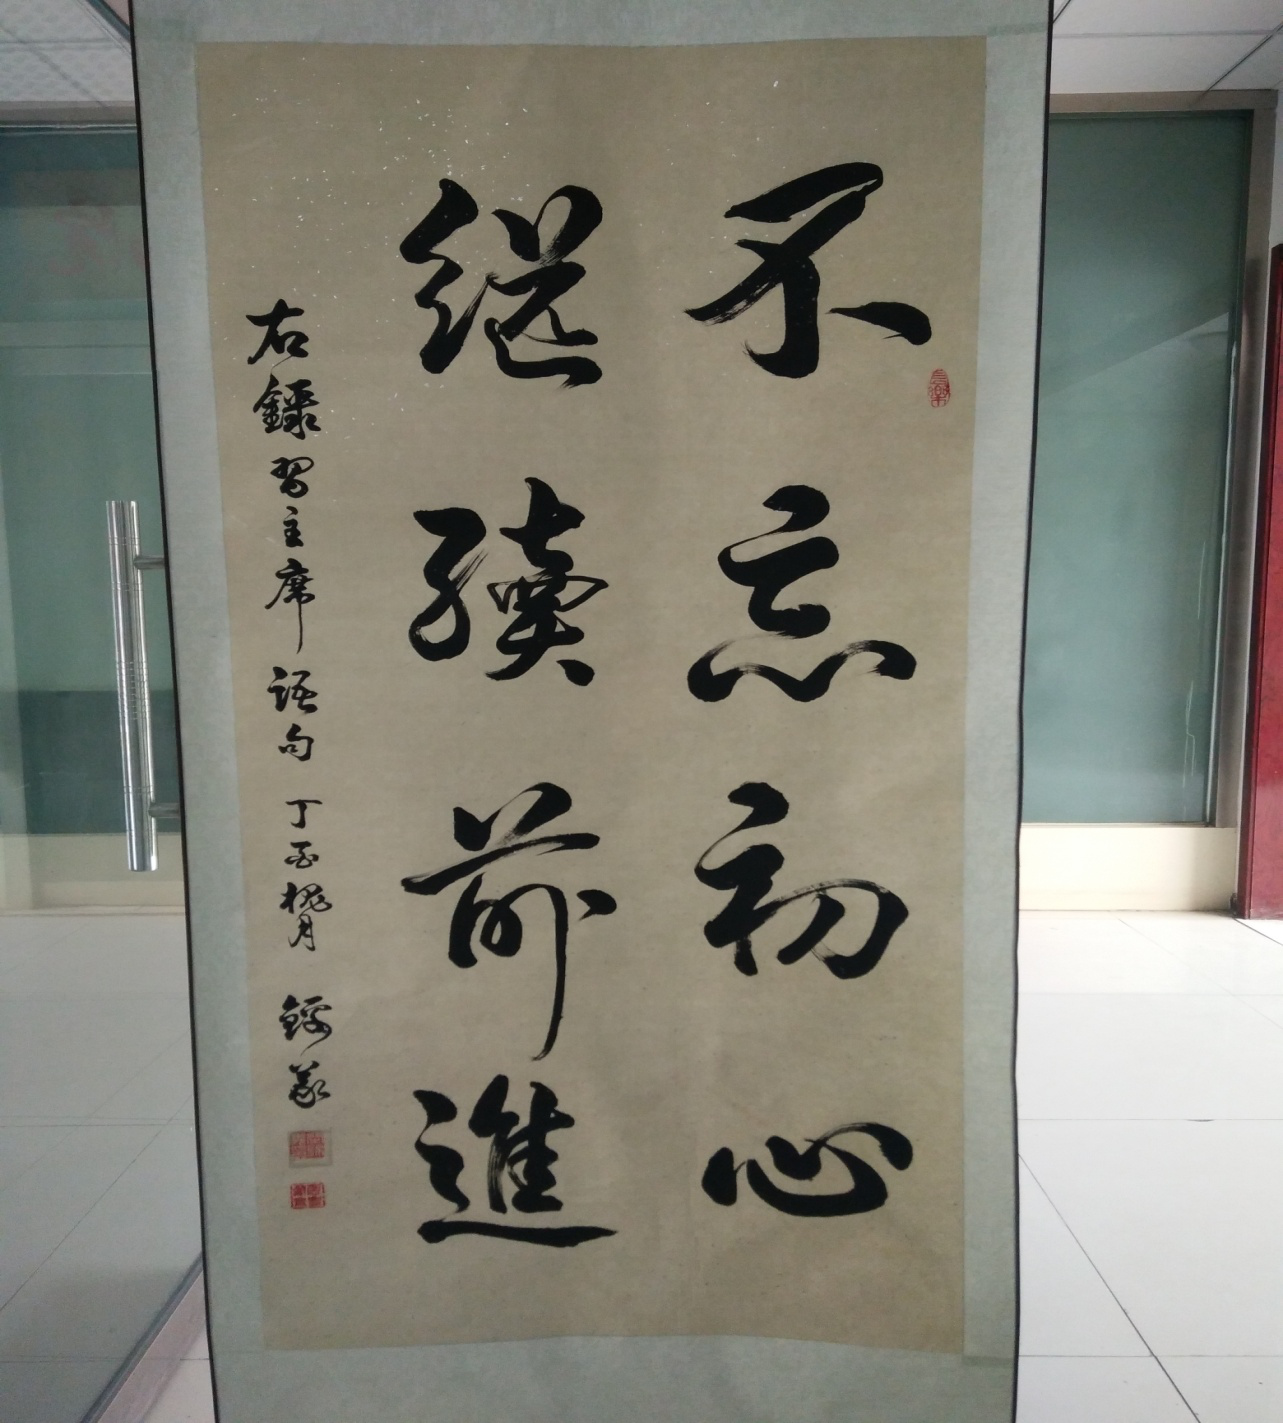 不忘初心
继續前進
右錄習主席語句 丁酉槐月